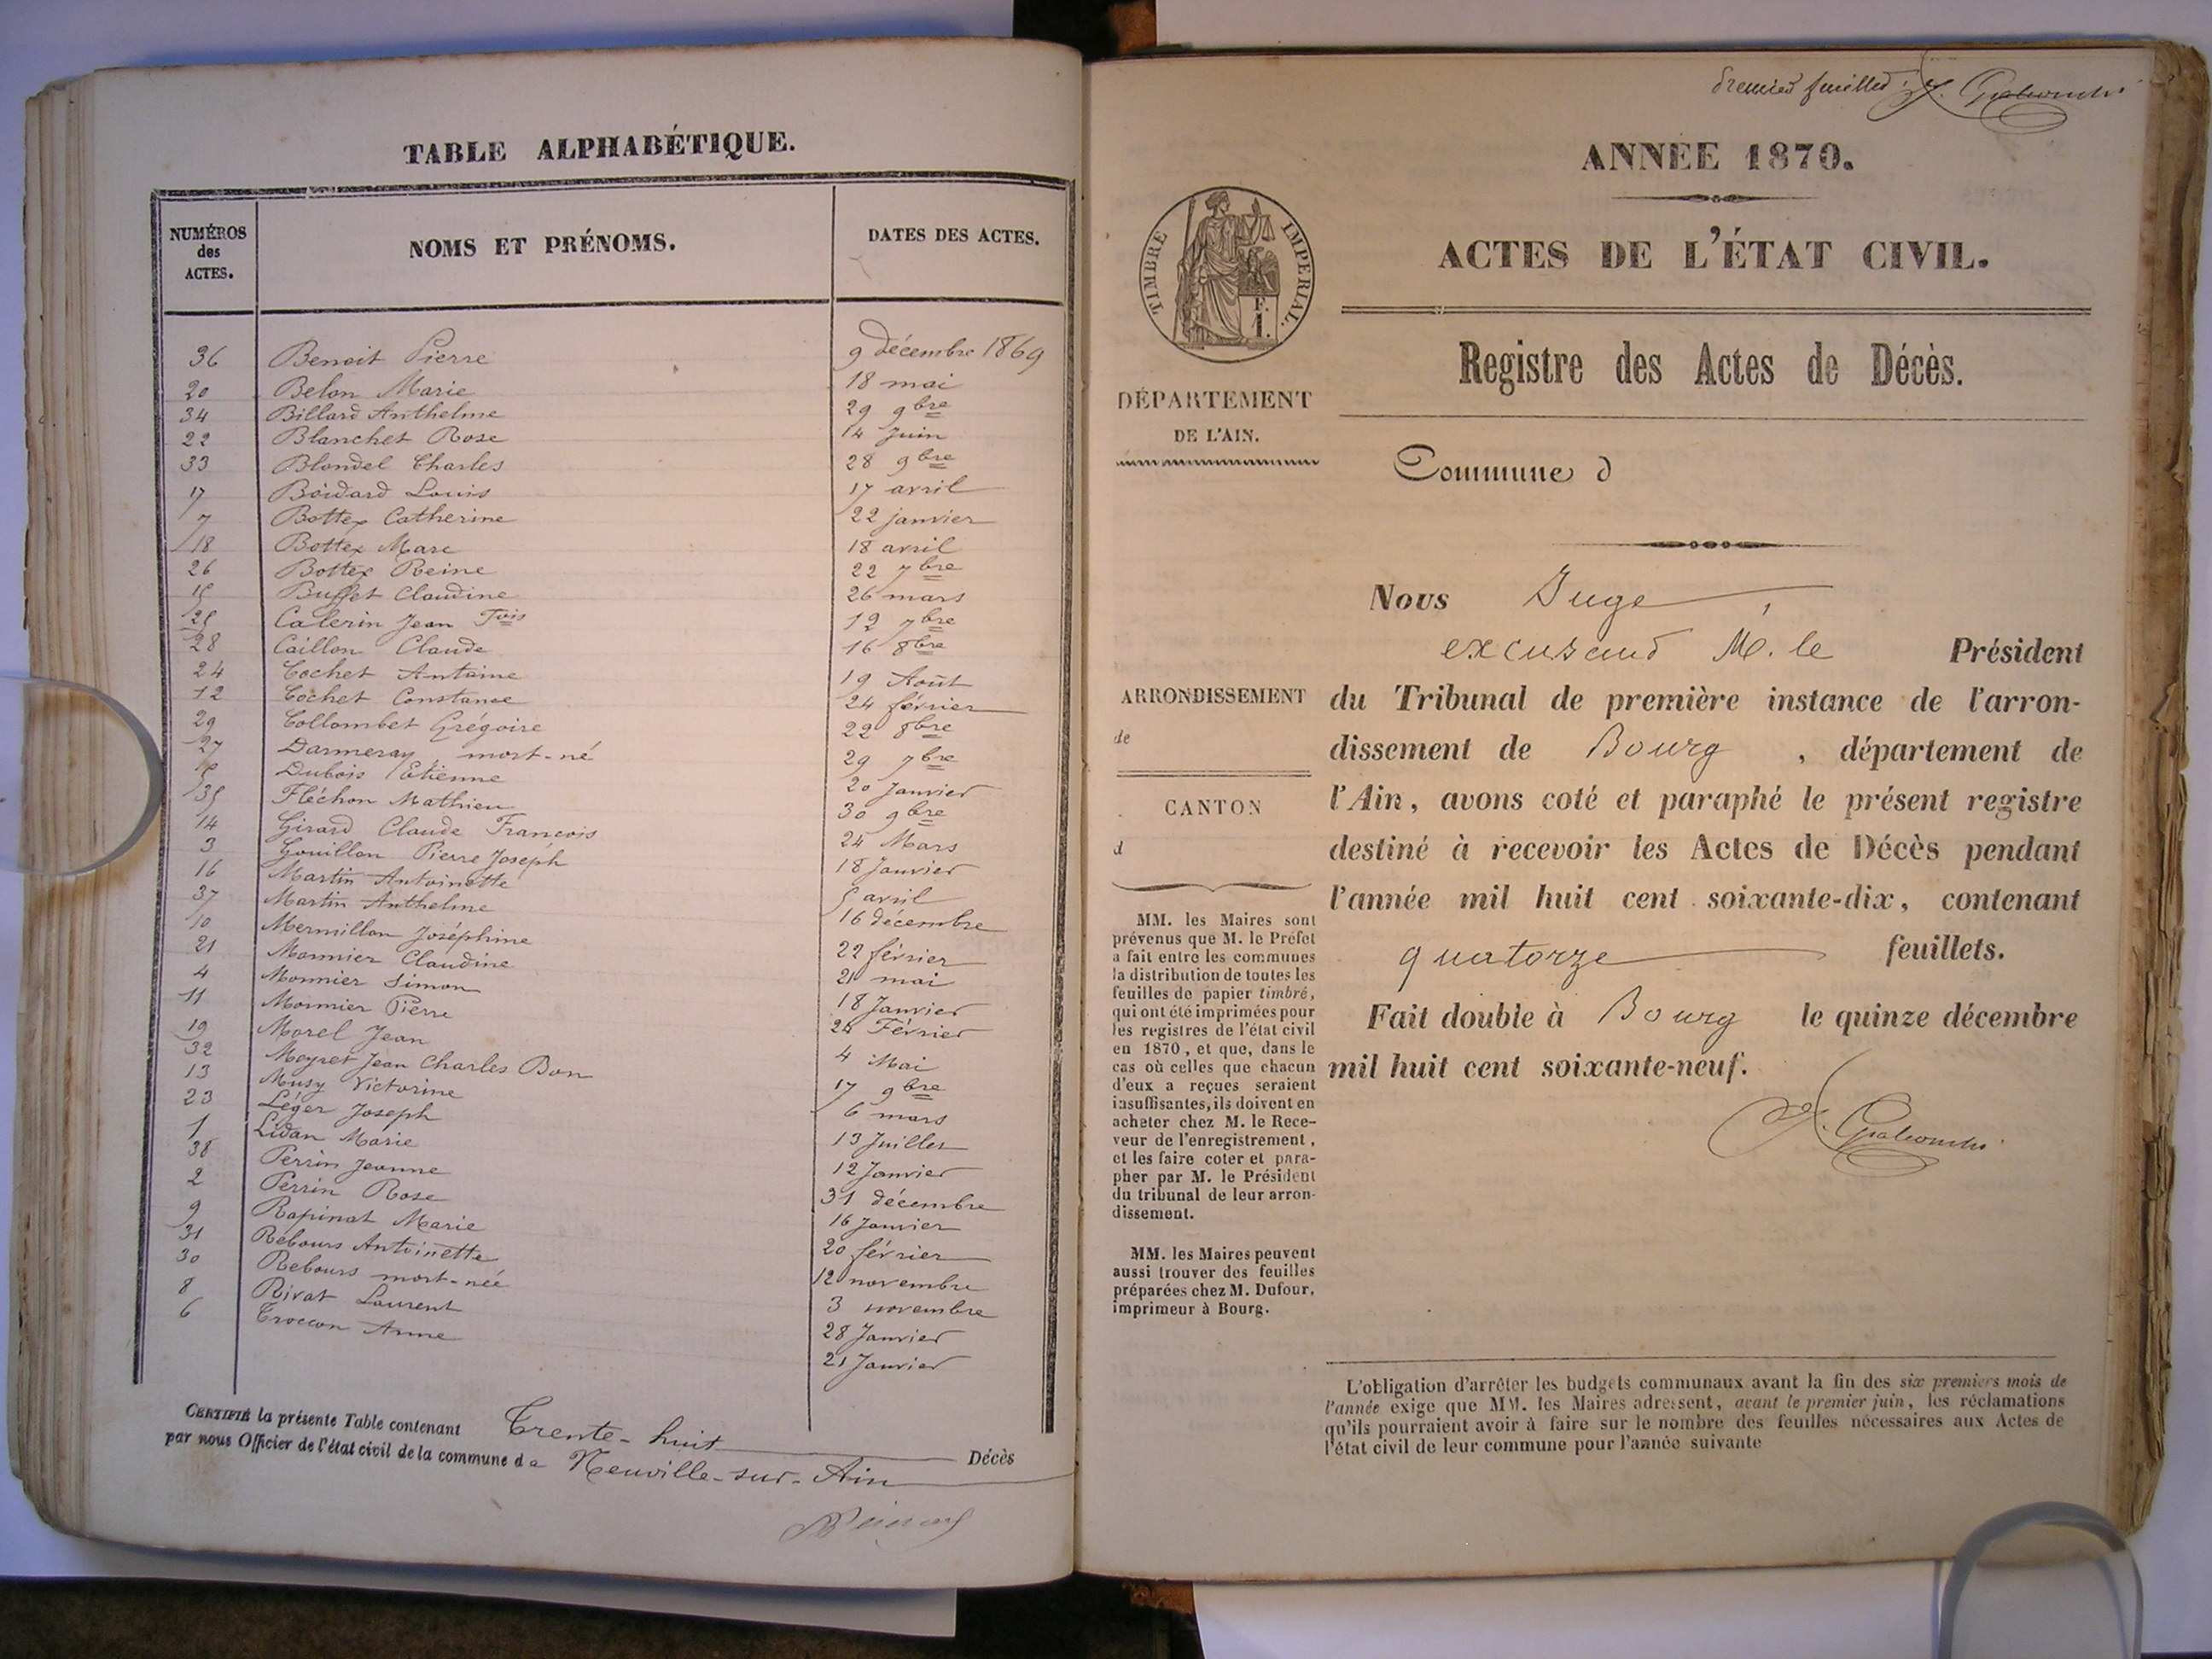 TABLE ALPHABÉTIQUE.
NUMÉROS des ACTES. NOMS ET PRÉNOMS. DATES DES ACTES.
36 Benoit Pierre 9 décembre 1869
20 Belon Marie 18 mai
34 Billard Anthelme 29 9bre
22 Blanchet Rose 14 Juin
33 Blondel Charles 28 9bre
17 Boidard Louis 17 avril
7 Bottex Catherine 22 janvier
18 Bottex Marc 18 avril
26 Bottex Reine 22 7bre
15 Buffet Claudine 26 mars
25 Calerin Jean Fois 12 7bre
28 Caillon Claude 16 8bre
24 Cochet Antoine 19 Août
12 Cochet Constance 24 février
29 Collombet Grégoire 22 8bre
27 Darmeray mort-né 29 7bre
Dubois Etienne 20 Janvier
35 Fléchon Mathieu 30 9bre
14 Girard Claude François 24 Mars
3 Gouillon Pierre Joseph 18 Janvier
16 Martin Antoinette 5 avril
37 Martin Anthelme 16 décembre
10 Mermillon Joséphine 22 février
21 Monnier Claudine 21 mai
4 Monnier Simon 18 Janvier
11 Monnier Pierre Février
19 Morel Jean 4 Mai
32 Meyret Jean Charles Bon 17 9bre
13 Musy Victorine 6 mars
23 Léger Joseph 13 Juillet
1 Lidan Marie 12 Janvier
38 Perrin Jeanne 31 décembre
2 Perrin Rose 16 Janvier
9 Rapinat Marie 20 février
31 Rebours Antoinette 12 novembre
30 Rebours mort-née 3 novembre
8 Rivat Laurent 28 Janvier
6 Troccon Anne 21 Janvier
CERTIFIÉ la présente Table contenant Trente-huit Décès
par nous Officier de l'état civil de la commune de Neuville-sur-Ain
Premier feuillet
ANNÉE 1870.
ACTES DE L'ÉTAT CIVIL.
Registre des Actes de Décès.
TIMBRE IMPERIAL.
F.
1.
DÉPARTEMENT
DE L'AIN.
Commune d
ARRONDISSEMENT
de
CANTON
d
MM. les Maires sont
prévenus que M. le Préfet
a fait entre les communes
la distribution de toutes les
feuilles de papier timbré,
qui ont été imprimées pour
les registres de l'état civil
en 1870, et que, dans le
cas où celles que chacun
d'eux a reçues seraient
insuffisantes, ils doivent en
acheter chez M. le Rece-
veur de l'enregistrement,
et les faire coter et para-
pher par M. le Président
du tribunal de leur arron-
dissement.
MM. les Maires peuvent
aussi trouver des feuilles
préparées chez M. Dufour,
imprimeur à Bourg.
Nous Juge,
excusant M. le Président
du Tribunal de première instance de l'arron-
dissement de Bourg, département de
l'Ain, avons coté et paraphé le présent registre
destiné à recevoir les Actes de Décès pendant
l'année mil huit cent soixante-dix, contenant
quatorze feuillets.
Fait double à Bourg le quinze décembre
mil huit cent soixante-neuf.
L'obligation d'arrêter les budgets communaux avant la fin des six premiers mois de
l'année exige que MM. les Maires adressent, avant le premier juin, les réclamations
qu'ils pourraient avoir à faire sur le nombre des feuilles nécessaires aux Actes de
l'état civil de leur commune pour l'année suivante